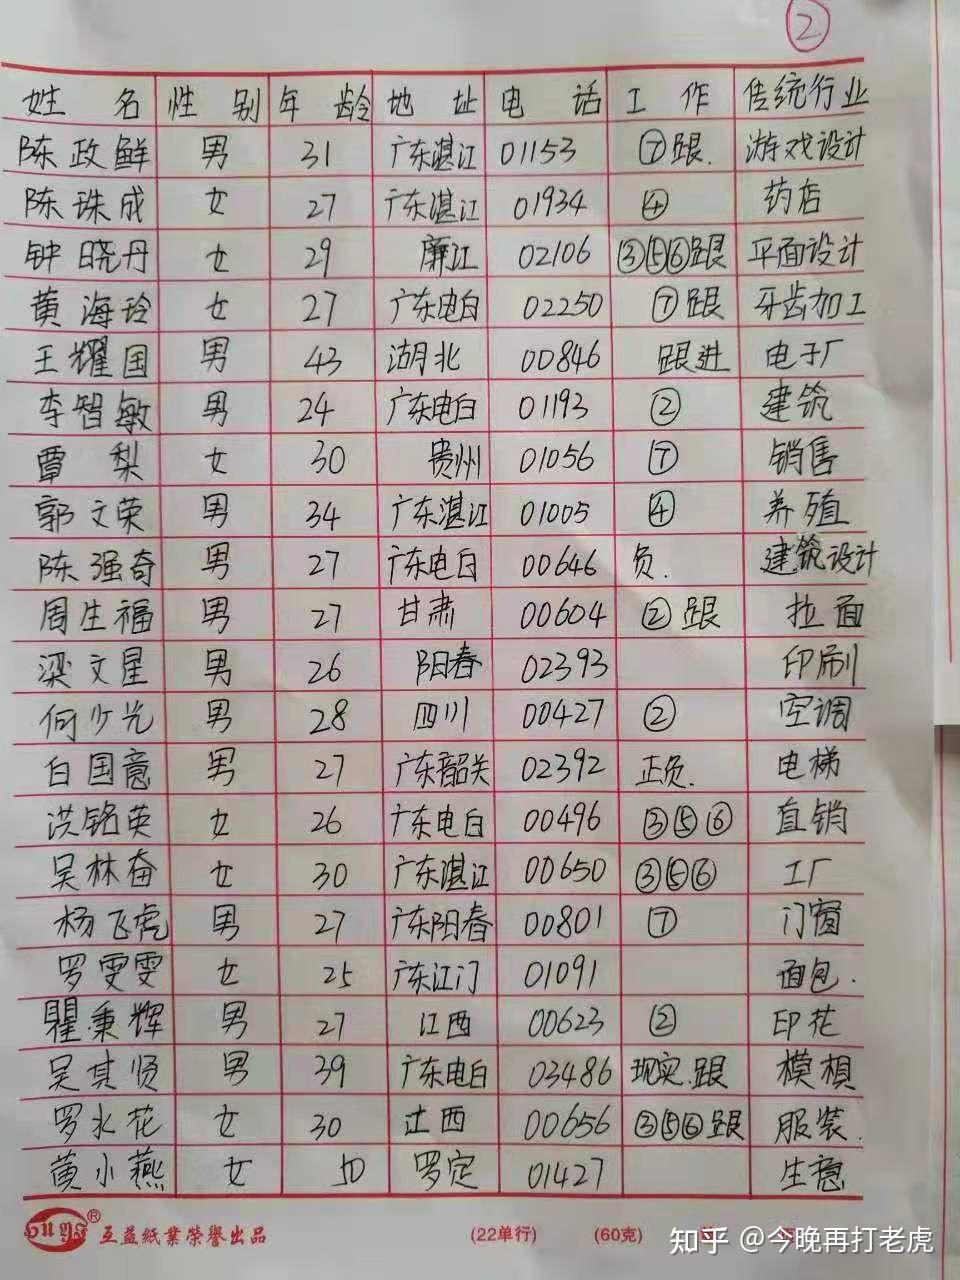 ②
姓名 性别 年龄 地址 电话 工作 传统行业
陈政鲜 男 31 广东湛江 01153 ⑦跟. 游戏设计
陈珠成 女 27 广东湛江 01934 ④ 药店
钟晓丹 女 29 廉江 02106 ③⑤⑥跟 平面设计
黄海玲 女 27 广东电白 02250 ⑦跟 牙齿加工
王耀国 男 43 湖北 00846 跟进 电子厂
李智敏 男 24 广东电白 01193 ② 建筑
覃梨 女 30 贵州 01056 ⑦ 销售
郭文荣 男 34 广东湛江 01005 ④ 养殖
陈强奇 男 27 广东电白 00646 负. 建筑设计
周生福 男 27 甘肃 00604 ②跟 拉面
梁文星 男 26 阳春 02393 印刷
何少允 男 28 四川 00427 ② 空调
白国意 男 27 广东韶关 02392 正负. 电梯
洪铭英 女 26 广东电白 00496 ③⑤⑥ 直销
吴林奋 女 30 广东湛江 00650 ③⑤⑥ 工厂
杨飞虎 男 27 广东阳春 00801 ⑦ 门窗
罗雯雯 女 25 广东江门 01091 面包.
瞿秉辉 男 27 江西 00623 ② 印花
吴其贤 男 39 广东电白 03486 现实.跟 模棋
罗水花 女 30 江西 00656 ③⑤⑥跟 服装.
黄小燕 女 50 罗定 01427 生意
互益紙業榮譽出品 (22单行) (60克)
知乎 @今晚再打老虎